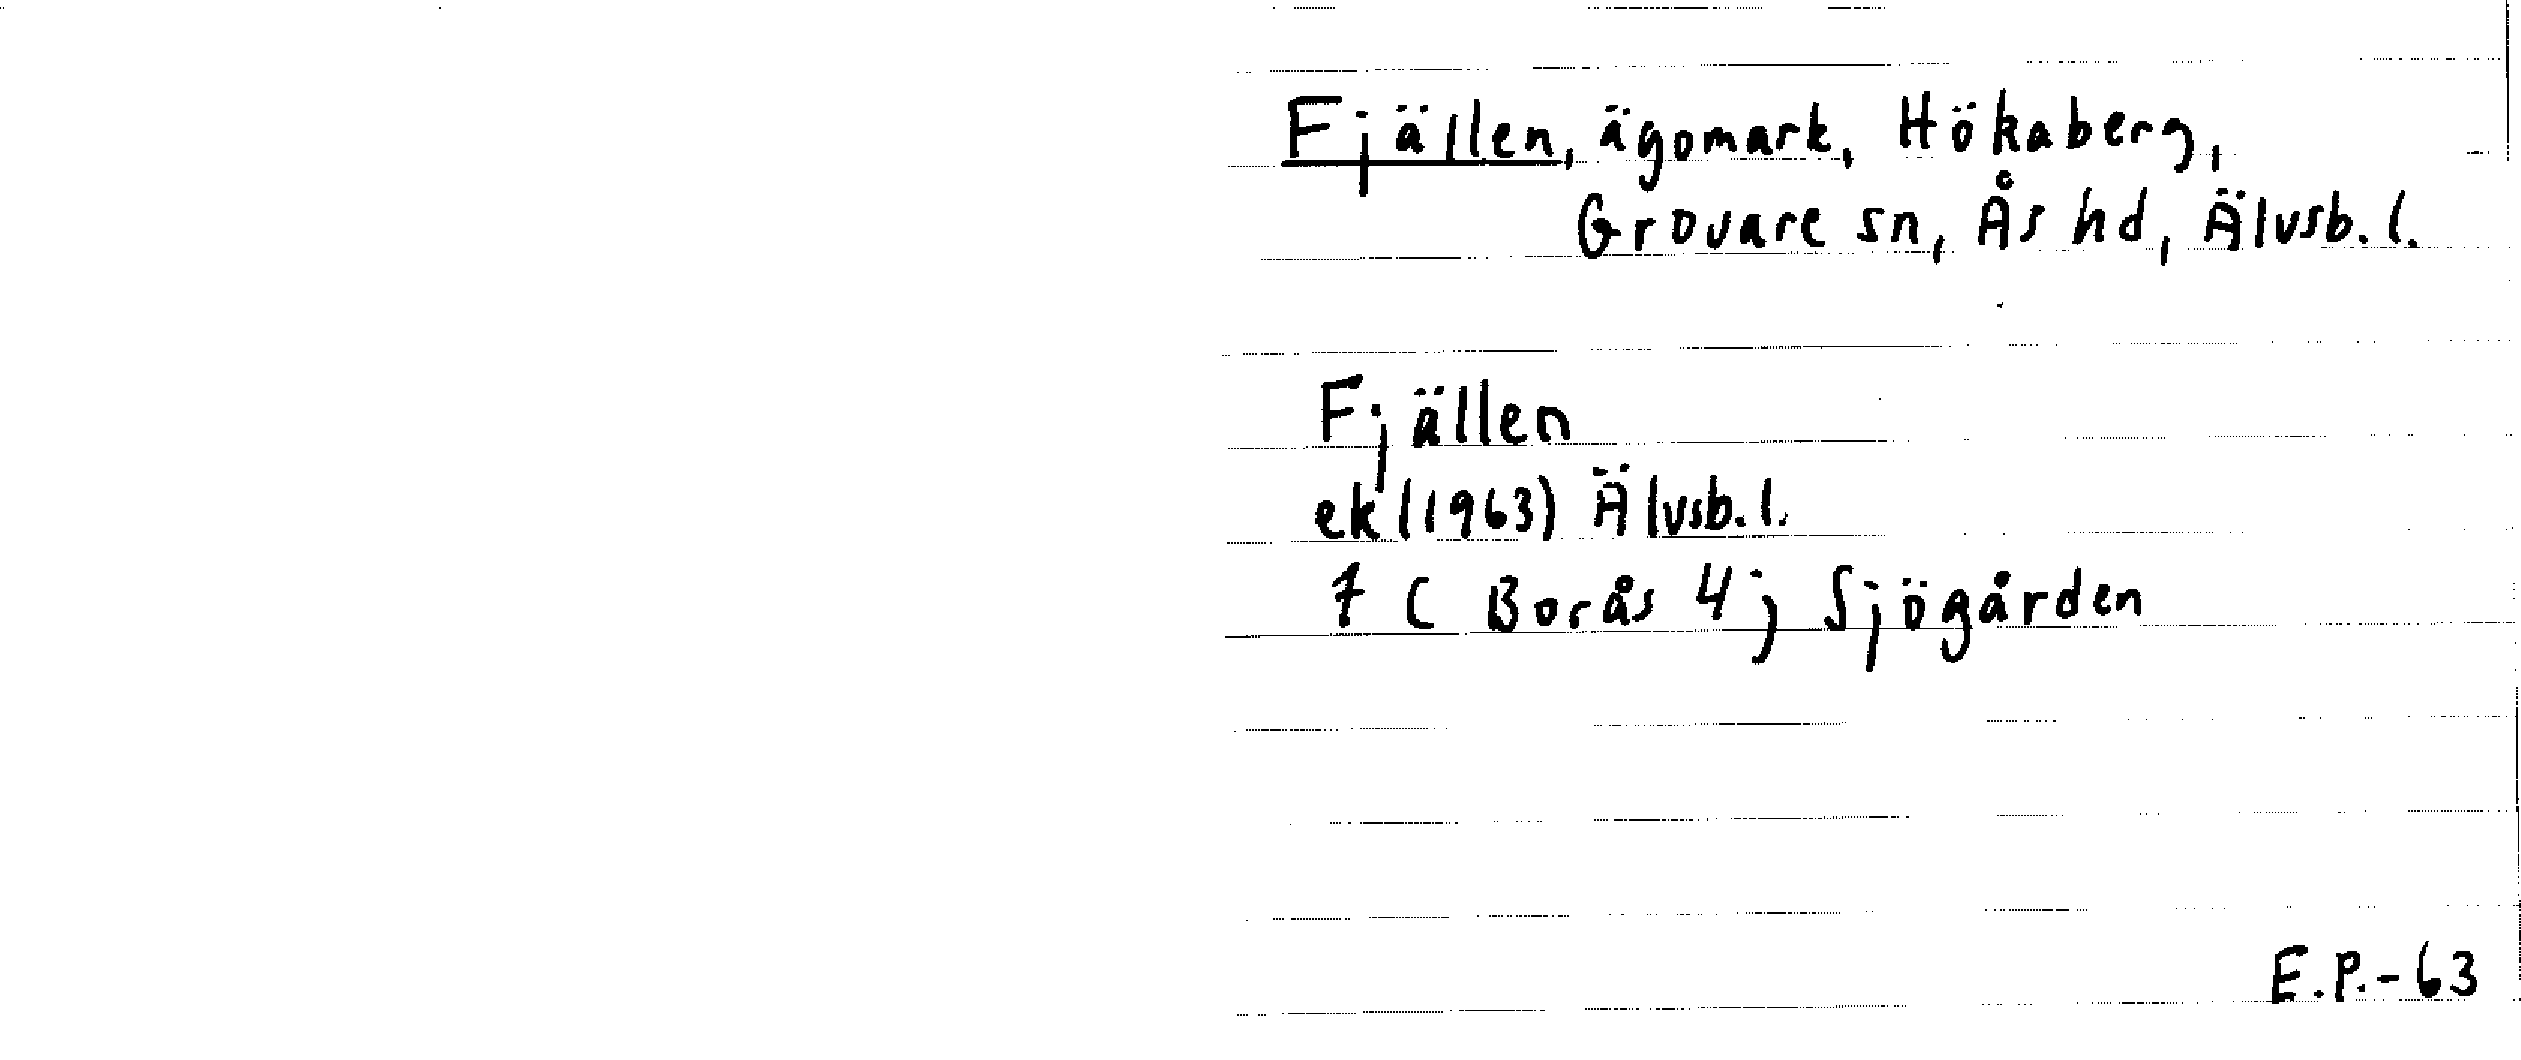 Fjällen, ägomark, Hökaberg,
Grovare sn, Ås hd, Älvsb. l.
Fjällen
ek (1963) Älvsb. l.
7 C Borås 4 j Sjögården
E.P.-63